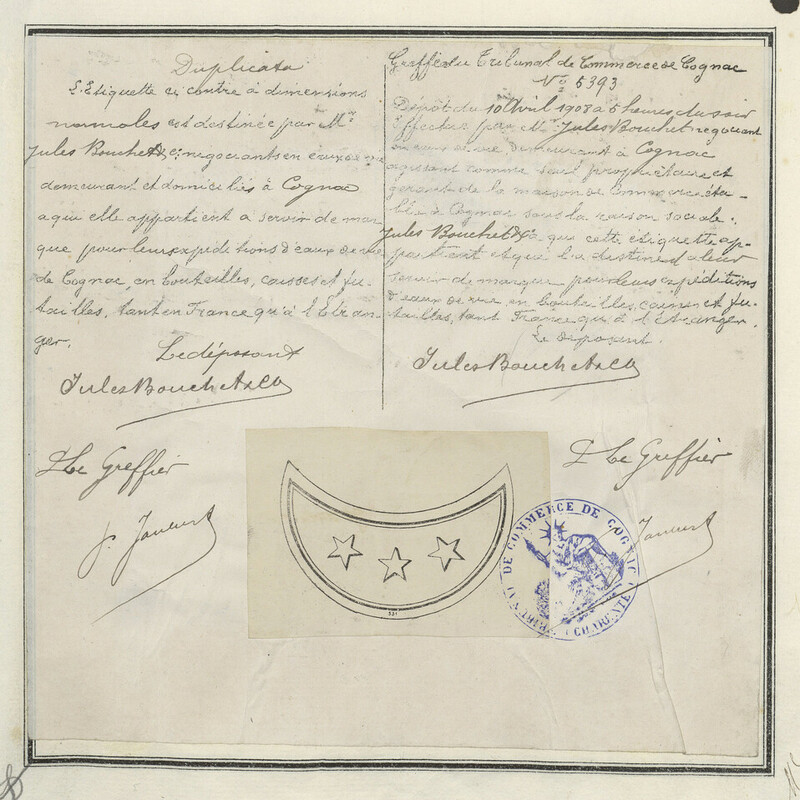 Duplicata
L'Etiquette ci contre à dimensions
normales est destinée par Mr
Jules Bouchet & Cie negociants en eaux de vie
demeurant et domiciliés à Cognac
a qui elle appartient a servir de mar-
que pour leurs expéditions d'eaux de vie
de Cognac, en bouteilles, caisses et fu-
tailles, tant en France qu'à l'Etran-
ger.
Le déposant
Jules Bouchet & Co
Le Greffier
Greffe du Tribunal de Commerce de Cognac
No 5393
Dépôt du 10 Avril 1908 à 5 heures du soir
Effectué par Mr Jules Bouchet negociant
en eaux de vie demeurant à Cognac
agissant comme seul propriétaire et
gerant de la maison de Commerce éta-
blie à Cognac sous la raison sociale.
Jules Bouchet & Co a qui cette étiquette ap-
partient et qui la destine a leur
servir de marque pour leurs expéditions
d'eaux de vie en bouteilles, caisses et fu-
tailles, tant France qu'à l'étranger.
Le déposant.
Jules Bouchet & Co
Le Greffier
331
TRIBUNAL DE COMMERCE DE COGNAC
(CHARENTE)